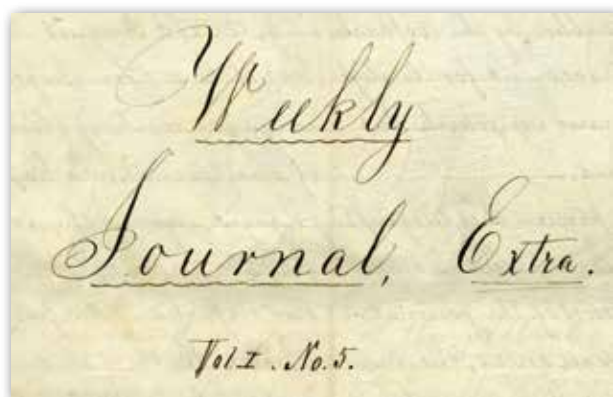 Weekly
Journal, Extra.
Vol. I. No. 5.